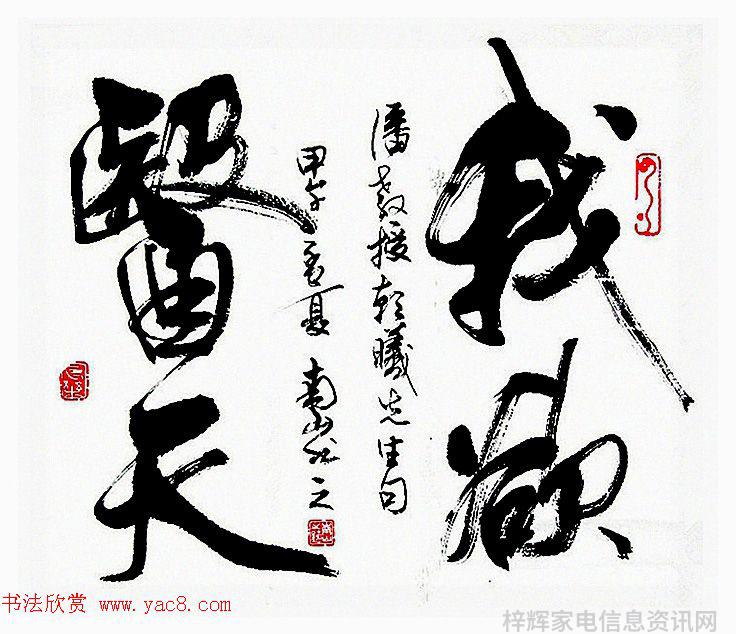 我欲
潘教授朝曦先生句
甲午孟夏 南山之
醫天
书法欣赏 www.yac8.com
梓辉家电信息资讯网